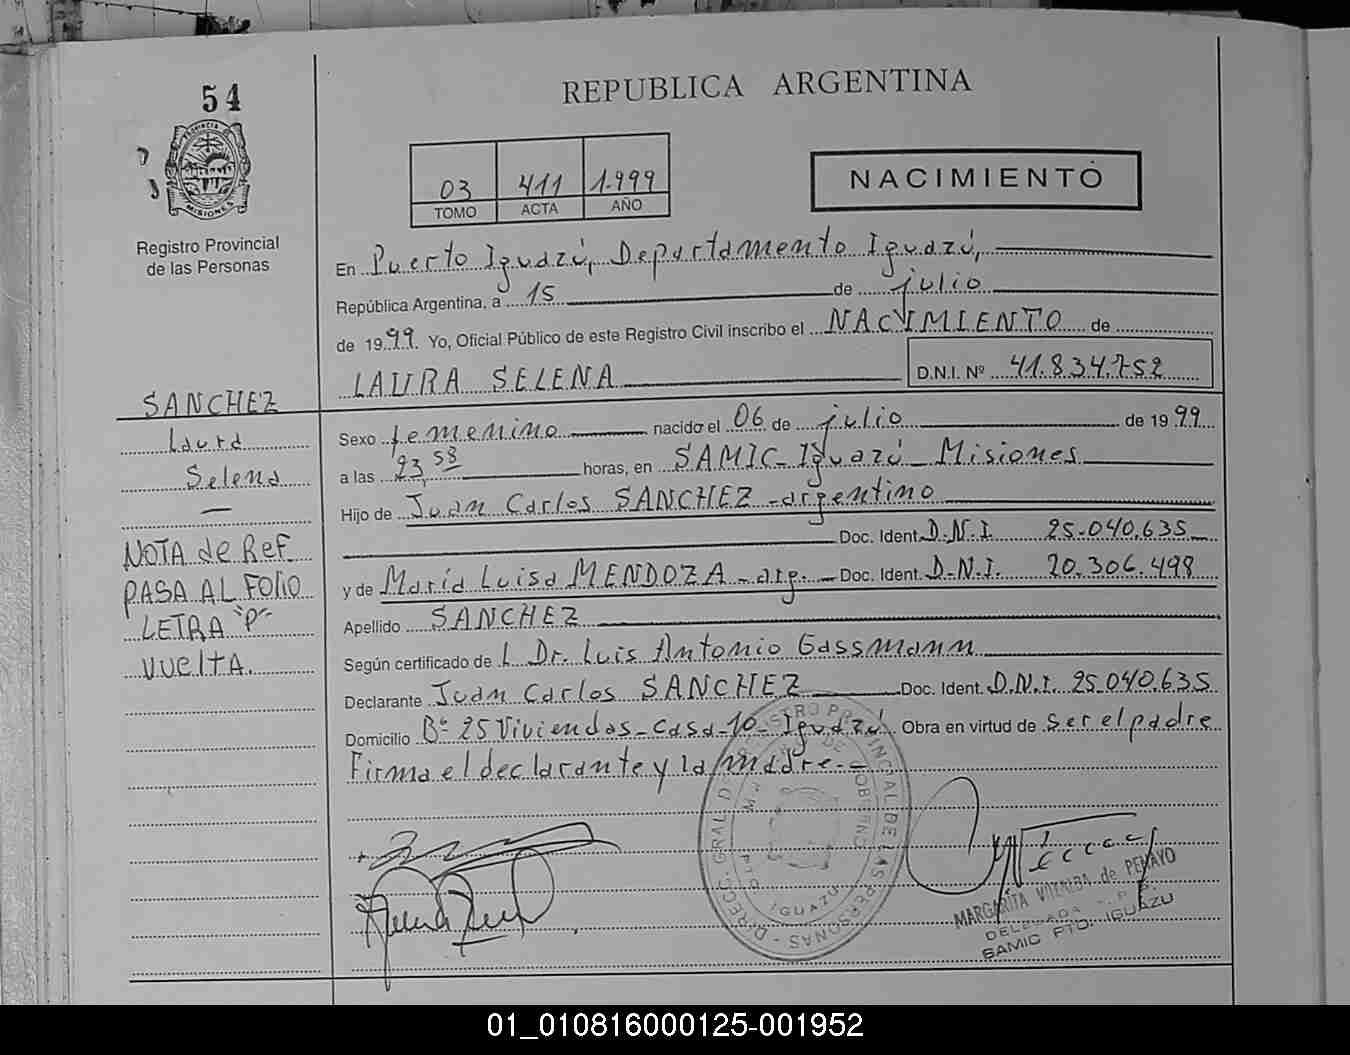 54
PROVINCIA DE MISIONES
Registro Provincial
de las Personas
REPUBLICA ARGENTINA
03 411 1.999
TOMO ACTA AÑO
NACIMIENTO
En Puerto Iguazú, Departamento Iguazú,
República Argentina, a 15 de julio
de 1999. Yo, Oficial Público de este Registro Civil inscribo el NACIMIENTO de
LAURA SELENA D.N.I. Nº 41.834.752
SANCHEZ
Laura
Selena
—
NOTA de Ref
PASA AL FOLIO
LETRA "P"
VUELTA.
Sexo femenino nacido el 06 de julio de 1999
a las 23,58 horas, en SAMIC - Iguazú - Misiones
Hijo de Juan Carlos SANCHEZ - argentino
Doc. Ident. D.N.I. 25.040.635
y de María Luisa MENDOZA - arg. - Doc. Ident. D.N.I. 20.306.498
Apellido SANCHEZ
Según certificado de l Dr. Luis Antonio Gassmann
Declarante Juan Carlos SANCHEZ Doc. Ident. D.N.I. 25.040.635
Domicilio Bº 25 Viviendas - Casa 10 - Iguazú Obra en virtud de ser el padre
Firma el declarante y la madre.-
MARGARITA de PENAYO
DELEGADA
SAMIC PTO. IGUAZU
01_010816000125-001952